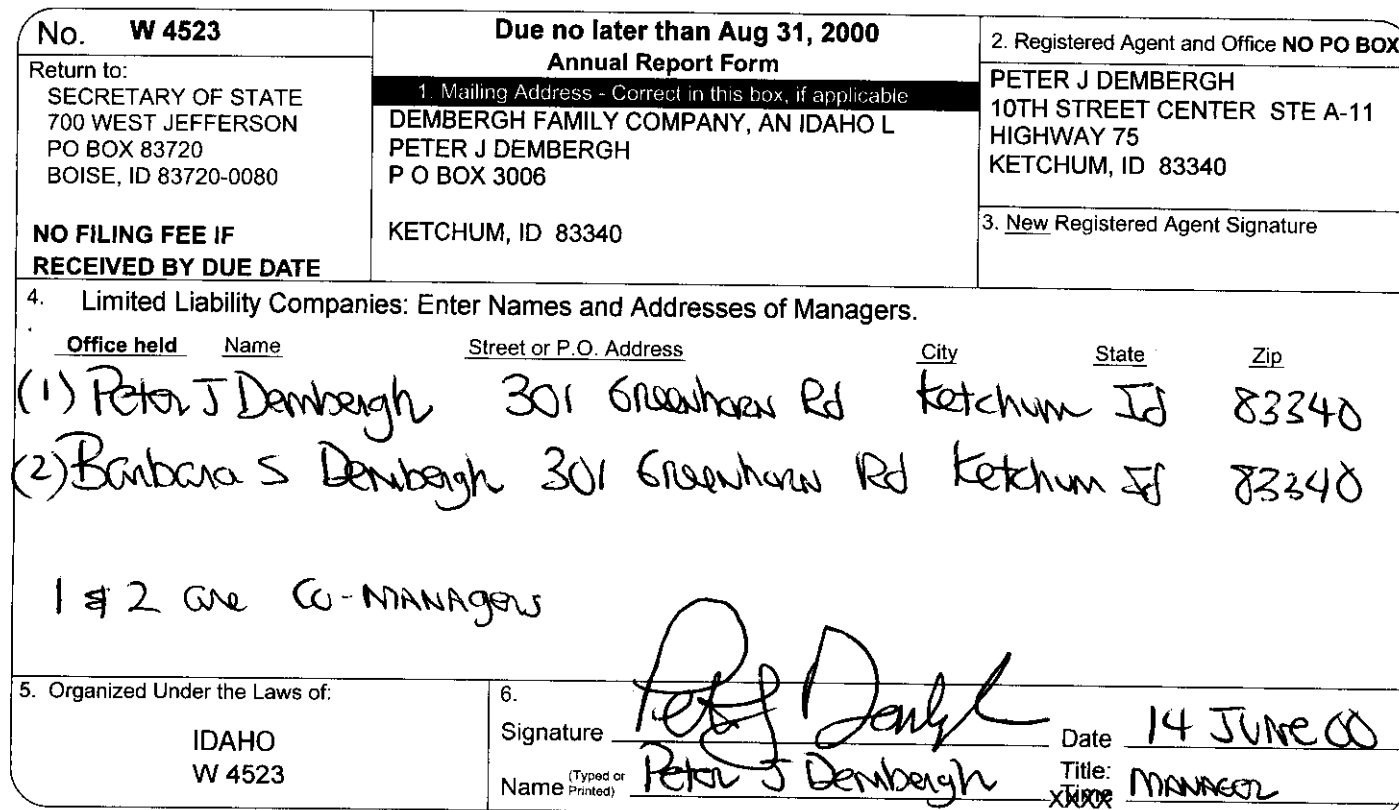 No. W 4523
Return to:
SECRETARY OF STATE
700 WEST JEFFERSON
PO BOX 83720
BOISE, ID 83720-0080
NO FILING FEE IF
RECEIVED BY DUE DATE
Due no later than Aug 31, 2000
Annual Report Form
1. Mailing Address - Correct in this box, if applicable
DEMBERGH FAMILY COMPANY, AN IDAHO L
PETER J DEMBERGH
P O BOX 3006
KETCHUM, ID 83340
2. Registered Agent and Office NO PO BOX
PETER J DEMBERGH
10TH STREET CENTER STE A-11
HIGHWAY 75
KETCHUM, ID 83340
3. New Registered Agent Signature
4. Limited Liability Companies: Enter Names and Addresses of Managers.
Office held Name Street or P.O. Address City State Zip
(1) Peter J Dembergh 301 Greenhorn Rd Ketchum Id 83340
(2) Barbara S Dembergh 301 Greenhorn Rd Ketchum Id 83340
1 & 2 are Co-MANAgers
5. Organized Under the Laws of:
IDAHO
W 4523
6.
Signature Peter J Dembergh Date 14 JUNe 00
Name (Typed or Printed) Peter J Dembergh Title: MANAGER